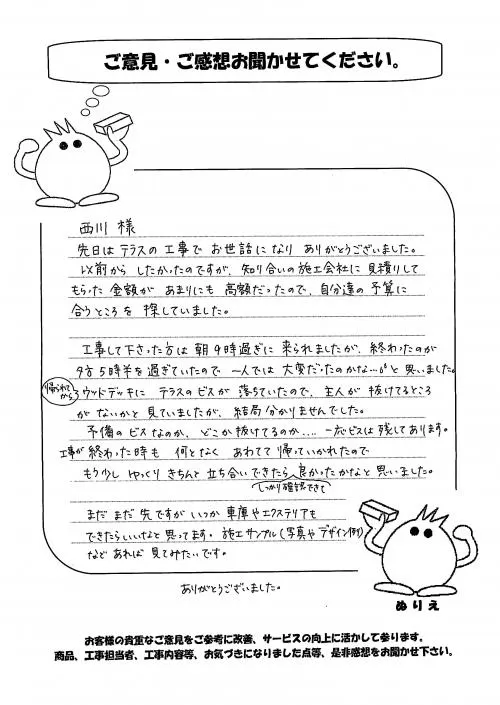 ご意見・ご感想お聞かせてください。
西川 様
先日は テラスの工事で お世話になり ありがとうございました。
以前から したかったのですが、知り合いの施工会社に 見積りして
もらった 金額が あまりにも 高額だったので、自分達の 予算に
合うところを 探していました。
工事して下さった方は 朝9時過ぎに 来られましたが、終わったのが
夕方5時半を過ぎていたので 一人では 大変だったのかな…と 思いました。
帰られてから ウッドデッキに テラスのビスが 落ちていたので、主人が 抜けてるところ
がないかと 見ていましたが、結局 分かりませんでした。
予備の ビスなのか、どこか 抜けてるのか.... 一応ビスは 残してあります。
工事が 終わった 時も 何となく あわてて 帰っていかれたので
もう少し ゆっくり きちんと 立ち合いできたら 良かったかなと 思いました。
しっかり確認できて
まだ まだ 先ですが いつか 車庫や エクステリアも
できたらいいなと 思ってます。施工サンプル(写真や デザイン例)
など あれば 見てみたいです。
ありがとうございました。
ぬりえ
お客様の貴重なご意見をご参考に改善、サービスの向上に活かして参ります。
商品、工事担当者、工事内容等、お気づきになりました点等、是非感想をお聞かせ下さい。